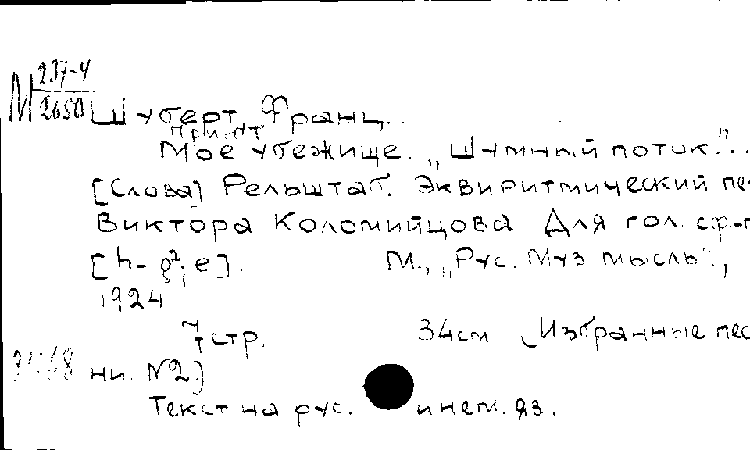 М 237-4
2650
Шуберт, Франц.
Приют
Мое убежище. "Шумный поток."..
[Слова] Рельштаб. Эквиритмический пе
Виктора Коломийцова Для гол. с ф-п
[h-g²; e]. М., "Рус. Муз мысль",
1924
7 стр. 34см (Избранные пес
ни. №2.)
Текст на рус. и нем. яз.